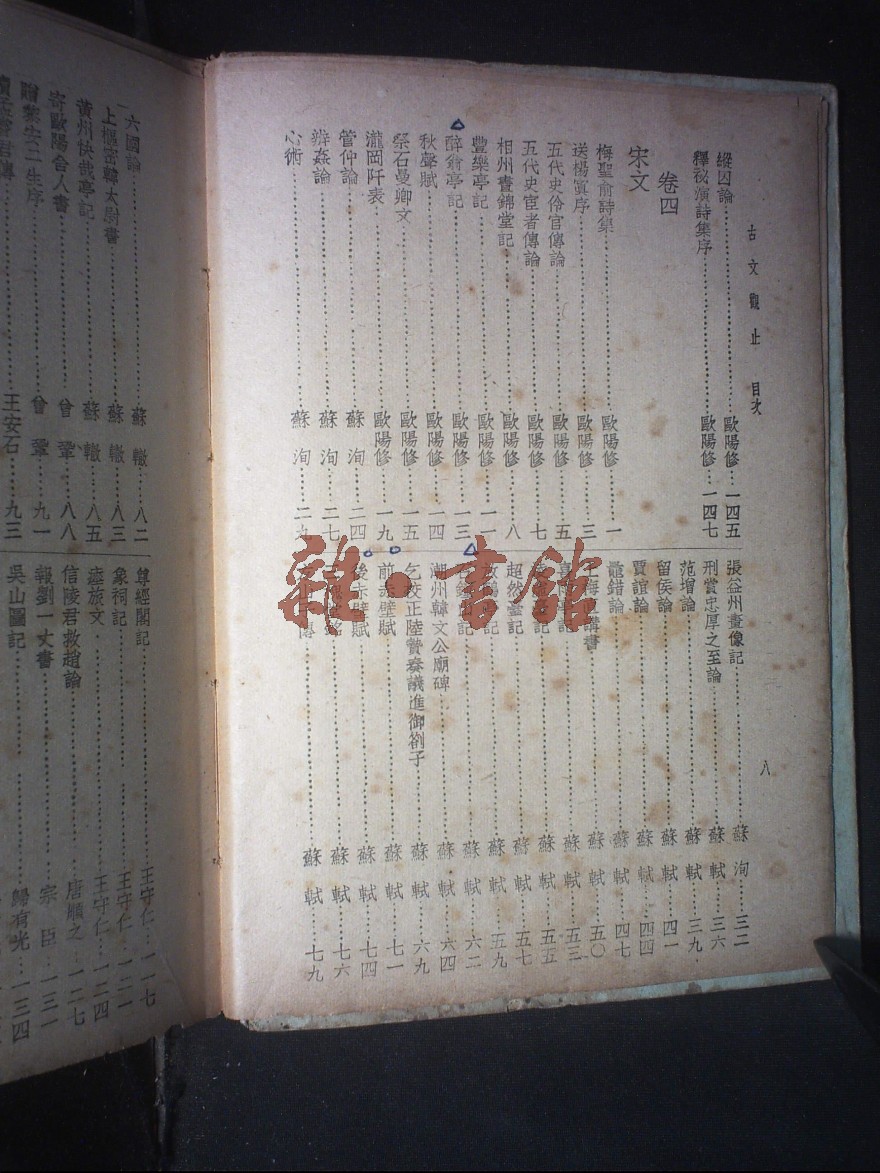 古文觀止 目次
八
縱囚論 歐陽修 一四五
釋祕演詩集序 歐陽修 一四七
卷四
宋文
梅聖俞詩集 歐陽修 一
送楊寘序 歐陽修 三
五代史伶官傳論 歐陽修 五
五代史宦者傳論 歐陽修 七
相州晝錦堂記 歐陽修 八
豐樂亭記 歐陽修 一一
醉翁亭記 歐陽修 一三
秋聲賦 歐陽修 一四
祭石曼卿文 歐陽修 一五
瀧岡阡表 歐陽修 一九
管仲論 蘇洵 二四
辨姦論 蘇洵 二七
心術 蘇洵 二九
張益州畫像記 蘇洵 三二
刑賞忠厚之至論 蘇軾 三六
范增論 蘇軾 三九
留侯論 蘇軾 四一
賈誼論 蘇軾 四四
鼂錯論 蘇軾 四七
上梅 書 蘇軾 五〇
記 蘇軾 五三
記 蘇軾 五五
超然臺記 蘇軾 五七
放鶴 記 蘇軾 五九
記 蘇軾 六二
潮州韓文公廟碑 蘇軾 六四
乞校正陸贄奏議進御劄子 蘇軾 六九
前赤壁賦 蘇軾 七一
後赤壁賦 蘇軾 七四
銘 蘇軾 七六
傳 蘇軾 七九
六國論 蘇轍 八二
上樞密韓太尉書 蘇轍 八三
黃州快哉亭記 蘇轍 八五
寄歐陽舍人書 曾鞏 八八
贈黎安二生序 曾鞏 九一
讀孟嘗君傳 王安石 九三
尊經閣記 王守仁 一一七
象祠記 王守仁 一二一
瘞旅文 王守仁 一二四
信陵君救趙論 唐順之 一二七
報劉一丈書 宗臣 一三一
吳山圖記 歸有光 一三四
雜·書館